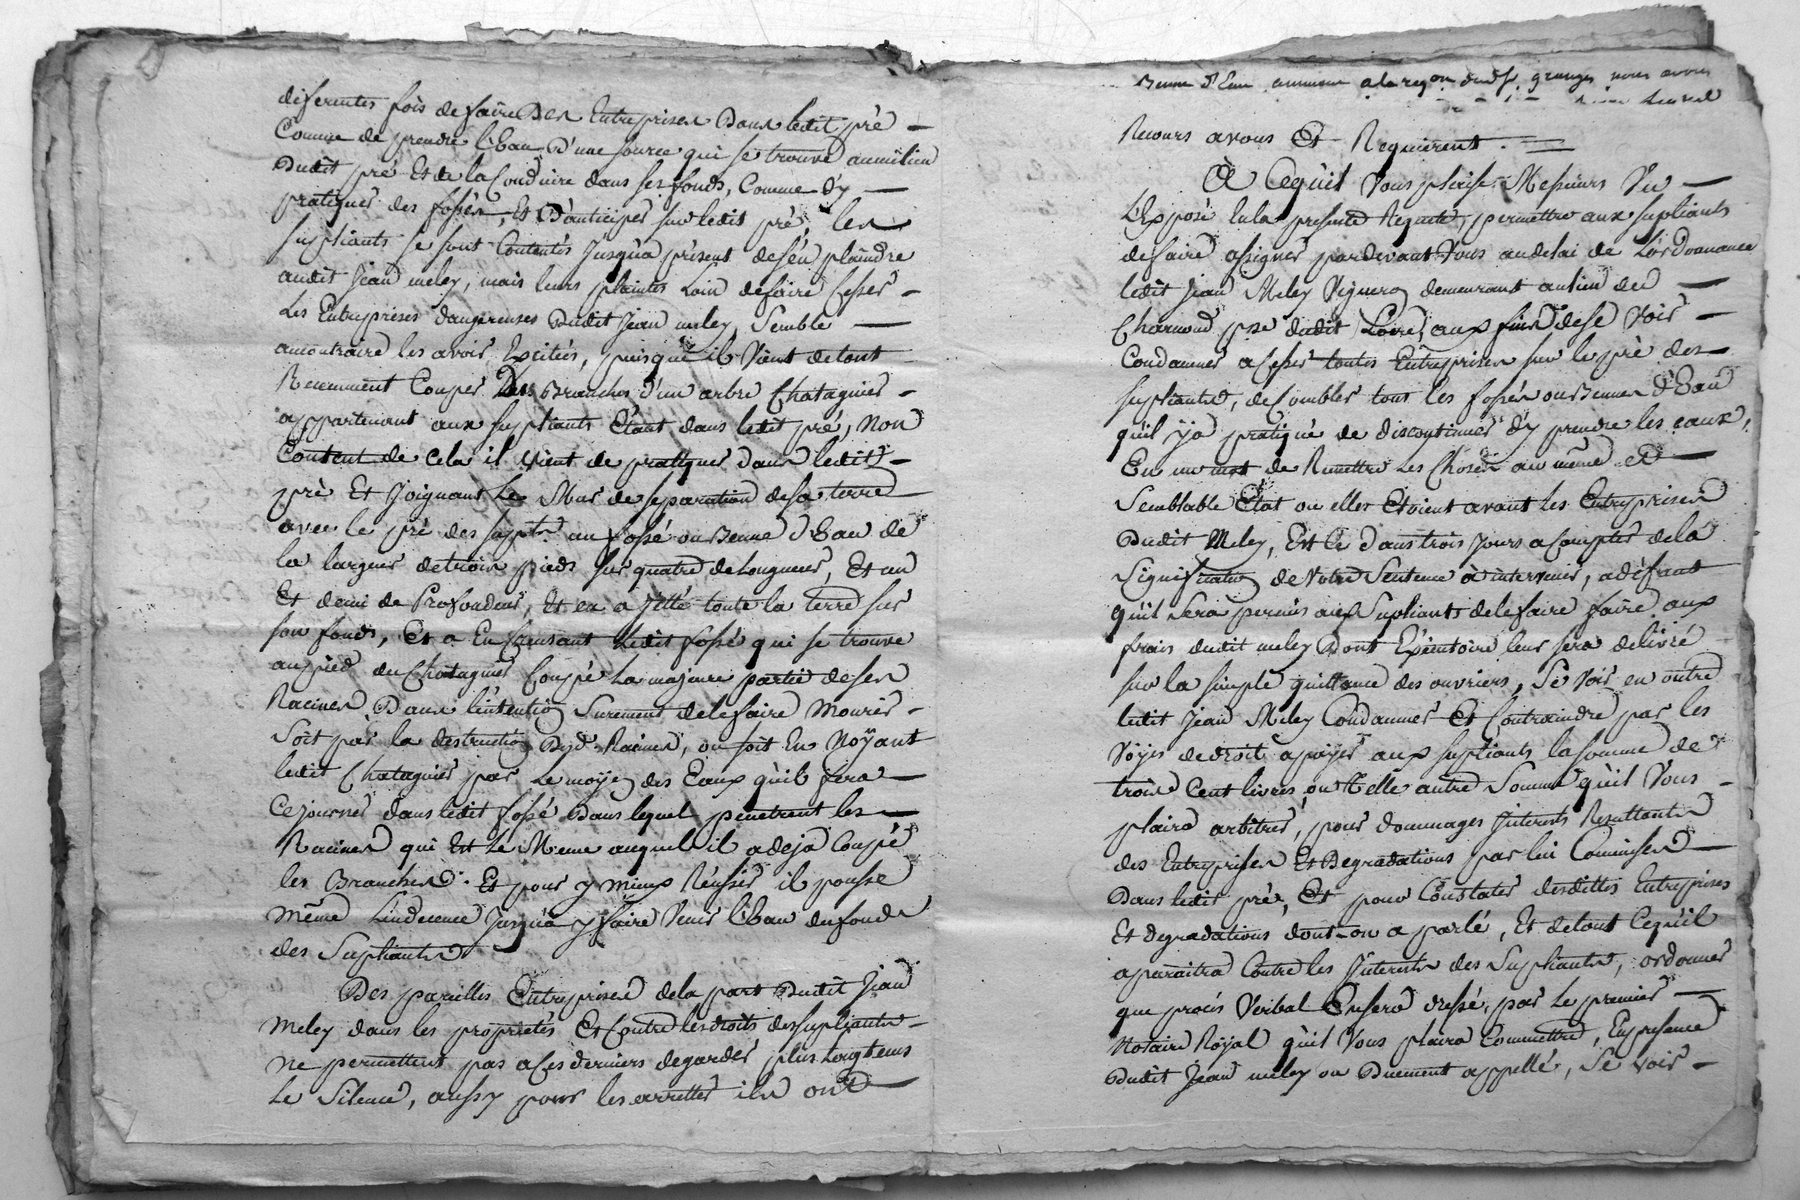 diferentes fois defaire Des Entreprises Dans ledit pré
Comme de prendre l'Eau D'une source qui se trouve aumilieu
Dudit pré Et de la Conduire dans ses fonds, Comme d'y
pratiquer des fossés, Et D'anticiper sur ledit pré, les
supliants se sont Contentés Jusqu'a présent deséu plaindre
audit Jean meley, mais leurs plaintes Loin defaire Cesser
Les Entreprises dangereuses Dudit Jean meley, Semble
aucontraire les avoir Excitées, puisque il Vient detout
Recemment Couper Des Branches d'un arbre Chatagnier
appartenant aux supliants Étant dans ledit pré, Non
Content de cela il vient de pratiquer dans ledit
pré Et Joignant Le Mur de separation desa terre
avec le pré des suplts. un fossé ou Benne d'Eau de
la largeur detrois pieds sur quatre delongueur, Et un
Et demi de Profondeur, Et en a Jetté toute la terre sur
son fonds, Et a En creusant ledit fossé qui se trouve
aupied du Chatagnier Coupé La majeure partie deses
Racines Dans l'intention Surement delefaire Mourir
Soit par la destruction Dyd. Racines, ou soit En Noÿant
ledit Chatagnier par Le moÿen des Eaux qu'il fera
Cejourner dans ledit fossé Dans lequel penetrent les
Racines qui Est Le Meme auquel il adeja Coupé
les Branches. Et pour y Mieux Réussir il pousse
même L'indecence Jusqu'a y faire Venir l'Eau dufonds
des Supliants
Des pareilles Entreprises dela part Dudit Jean
Meley dans les proprietés Et Contre lesdroits desSupliants
ne permettent pas aCesderniers degarder plus Longtems
Le Silence, aussy pour les arretter ils ont
Benne d'Eau
granges nous avons
Recours avous Et Requierent.
À Cequ'il Vous plaise Messieurs Vu
L'Exposé Enla presente Requete, permettre aux supliants
defaire assigner pardevant Vous audelai de L'ordonnance
ledit Jean Meley Vigneron demeurant aulieu des
Charmond psse dudit Loire, aux fins dese Voir
Condamner aCesser toutes Entreprises sur le pré des
supliants, deCombler tous les fossés ou Bennes d'Eau
qu'il ÿa pratiqué de discontinuer d'y prendre les eaux,
En un mot de Remettre Les Choses au même Et
Semblable État ou elles Etoient avant les Entreprises
Dudit Meley, Et Ce dans trois Jours aCompter dela
Signification de Votre Sentence à intervenir, adéfaut
qu'il Sera permis aux Supliants delefaire faire aux
frais dudit meley Dont Exécutoire leur sera delivré
sur la simple quittance des ouvriers, Se Voir en outre
ledit Jean Meley Condamner Et Contraindre par les
Voÿes dedroit apaÿer aux supliants lasomme de
trois Cent livres, ou Telle autre Somme qu'il Vous
plaira arbitrer, pour dommages Interets Resultants
des Entreprises Et Degradations par lui Commises
Dans ledit pré, Et pour Constater desdittes Entreprises
Et degradations dont-on a parlé, Et detout Cequ'il
aparaitra Contre les Interets des Supliants, ordonner
que procés Verbal Ensera dressé, par Le premier
Notaire Roÿal qu'il Vous plaira Commettre, Enpresence
Dudit Jean meley ou Duement appellé, Se voir